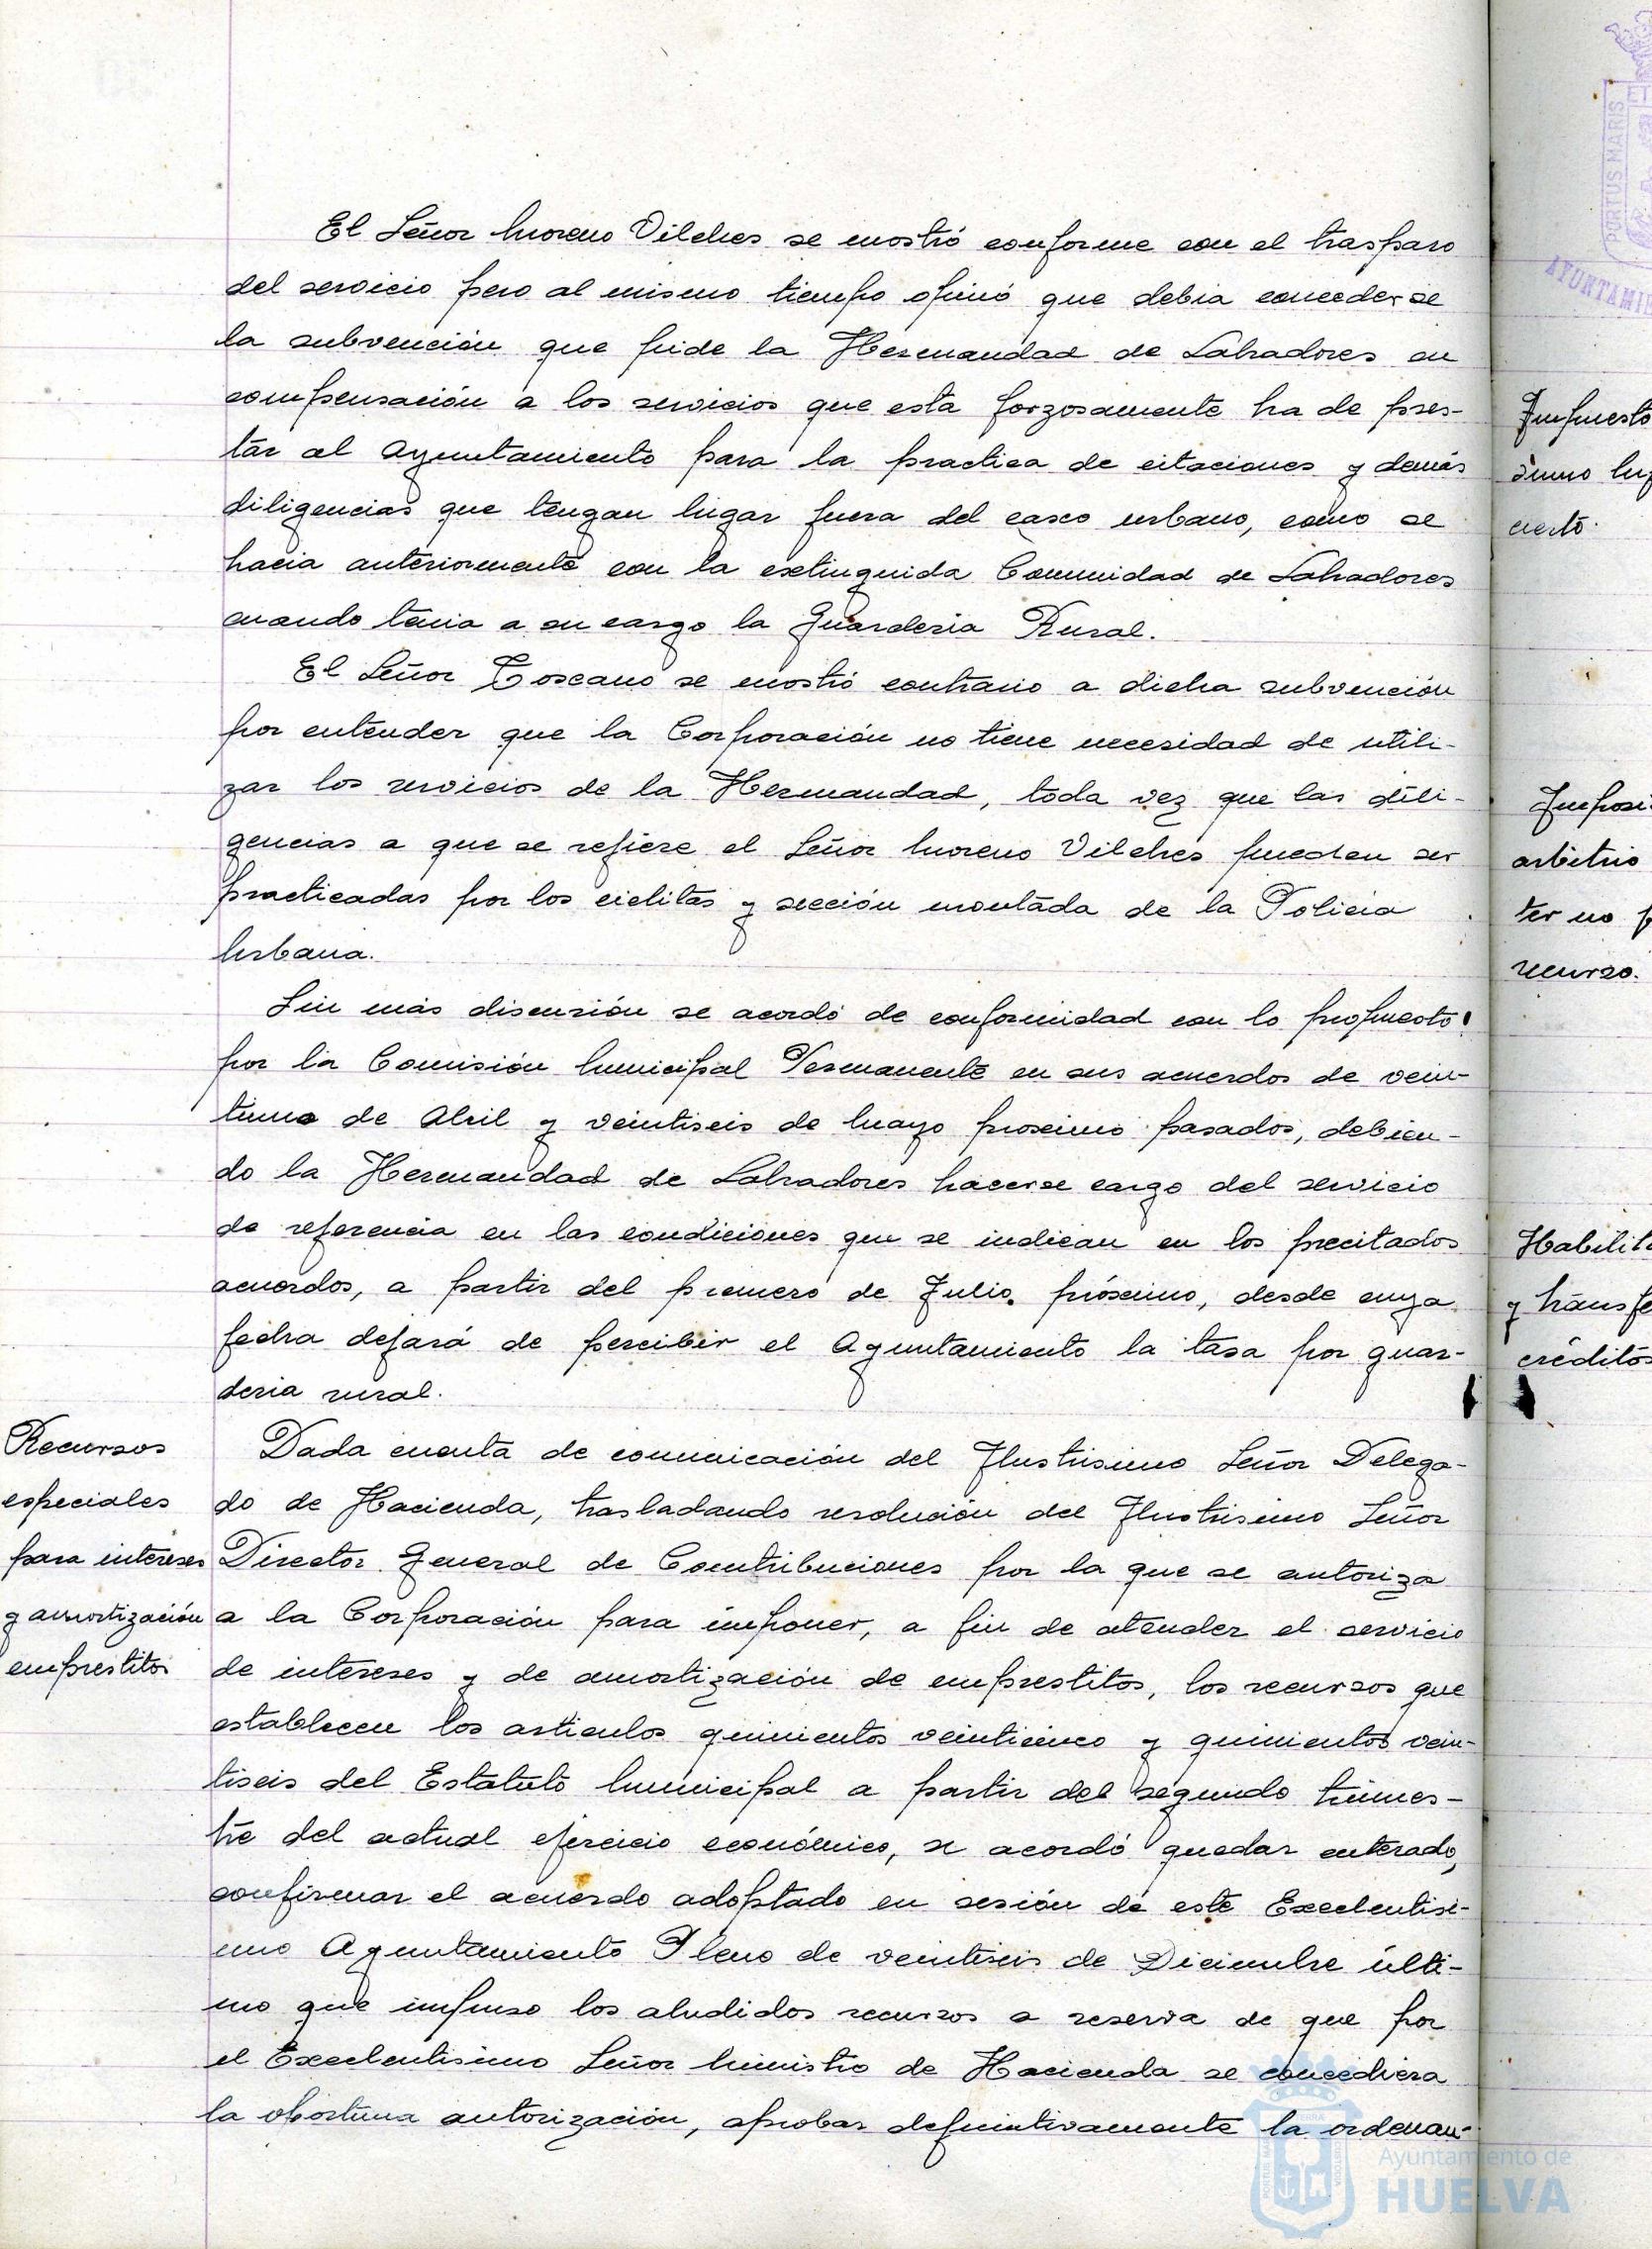 El Señor Moreno Vilches se mostró conforme con el traspaso
del servicio pero al mismo tiempo opinó que debia concederse
la subvención que pide la Hermandad de Labradores en
compensación a los servicios que esta forzosamente ha de pres-
tar al Ayuntamiento para la practica de citaciones y demás
diligencias que tengan lugar fuera del casco urbano, como se
hacia anteriormente con la extinguida Comunidad de Labradores
cuando tenia a su cargo la Guarderia Rural.
El Señor Toscano se mostró contrario a dicha subvención
por entender que la Corporación no tiene necesidad de utili-
zar los servicios de la Hermandad, toda vez que las dili-
gencias a que se refiere el Señor Moreno Vilches pueden ser
practicadas por los ciclitas y sección montada de la Policia
Urbana.
Sin más discusión se acordó de conformidad con lo propuesto
por la Comisión Municipal Permanente en sus acuerdos de vein-
tiuno de Abril y veintiseis de Mayo proximo pasados, debien-
do la Hermandad de Labradores hacerse cargo del servicio
de referencia en las condiciones que se indican en los precitados
acuerdos, a partir del primero de Julio próximo, desde cuya
fecha dejará de percibir el Ayuntamiento la tasa por guar-
deria rural.
Recursos
especiales
para intereses
y amortización
emprestitos
Dada cuenta de comunicación del Ilustrisimo Señor Delega-
do de Hacienda, trasladando resolución del Ilustrisimo Señor
Director General de Contribuciones por la que se autoriza
a la Corporación para imponer, a fin de atender el servicio
de intereses y de amortización de emprestitos, los recursos que
establecen los articulos quinientos veinticinco y quinientos vein-
tiseis del Estatuto Municipal a partir del segundo trimes-
tre del actual ejercicio económico, se acordó quedar enterado,
confirmar el acuerdo adoptado en sesión de este Excelentisi-
mo Ayuntamiento Pleno de veintiseis de Diciembre últi-
mo que impuso los aludidos recursos a reserva de que por
el Excelentisimo Señor Ministro de Hacienda se concediera
la oportuna autorización, aprobar definitivamente la ordenan-
PORTUS MARIS
AYUNTAMIE
Impuesto
cierto.
Imposi
arbitrio
ter no p
recurso.
Habilita
y transfe
créditos
Ayuntamiento de
HUELVA